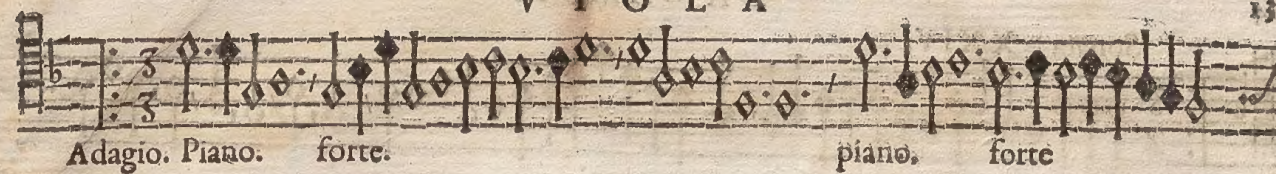 V I O L A 13
3
3
Adagio. Piano. forte. piano. forte